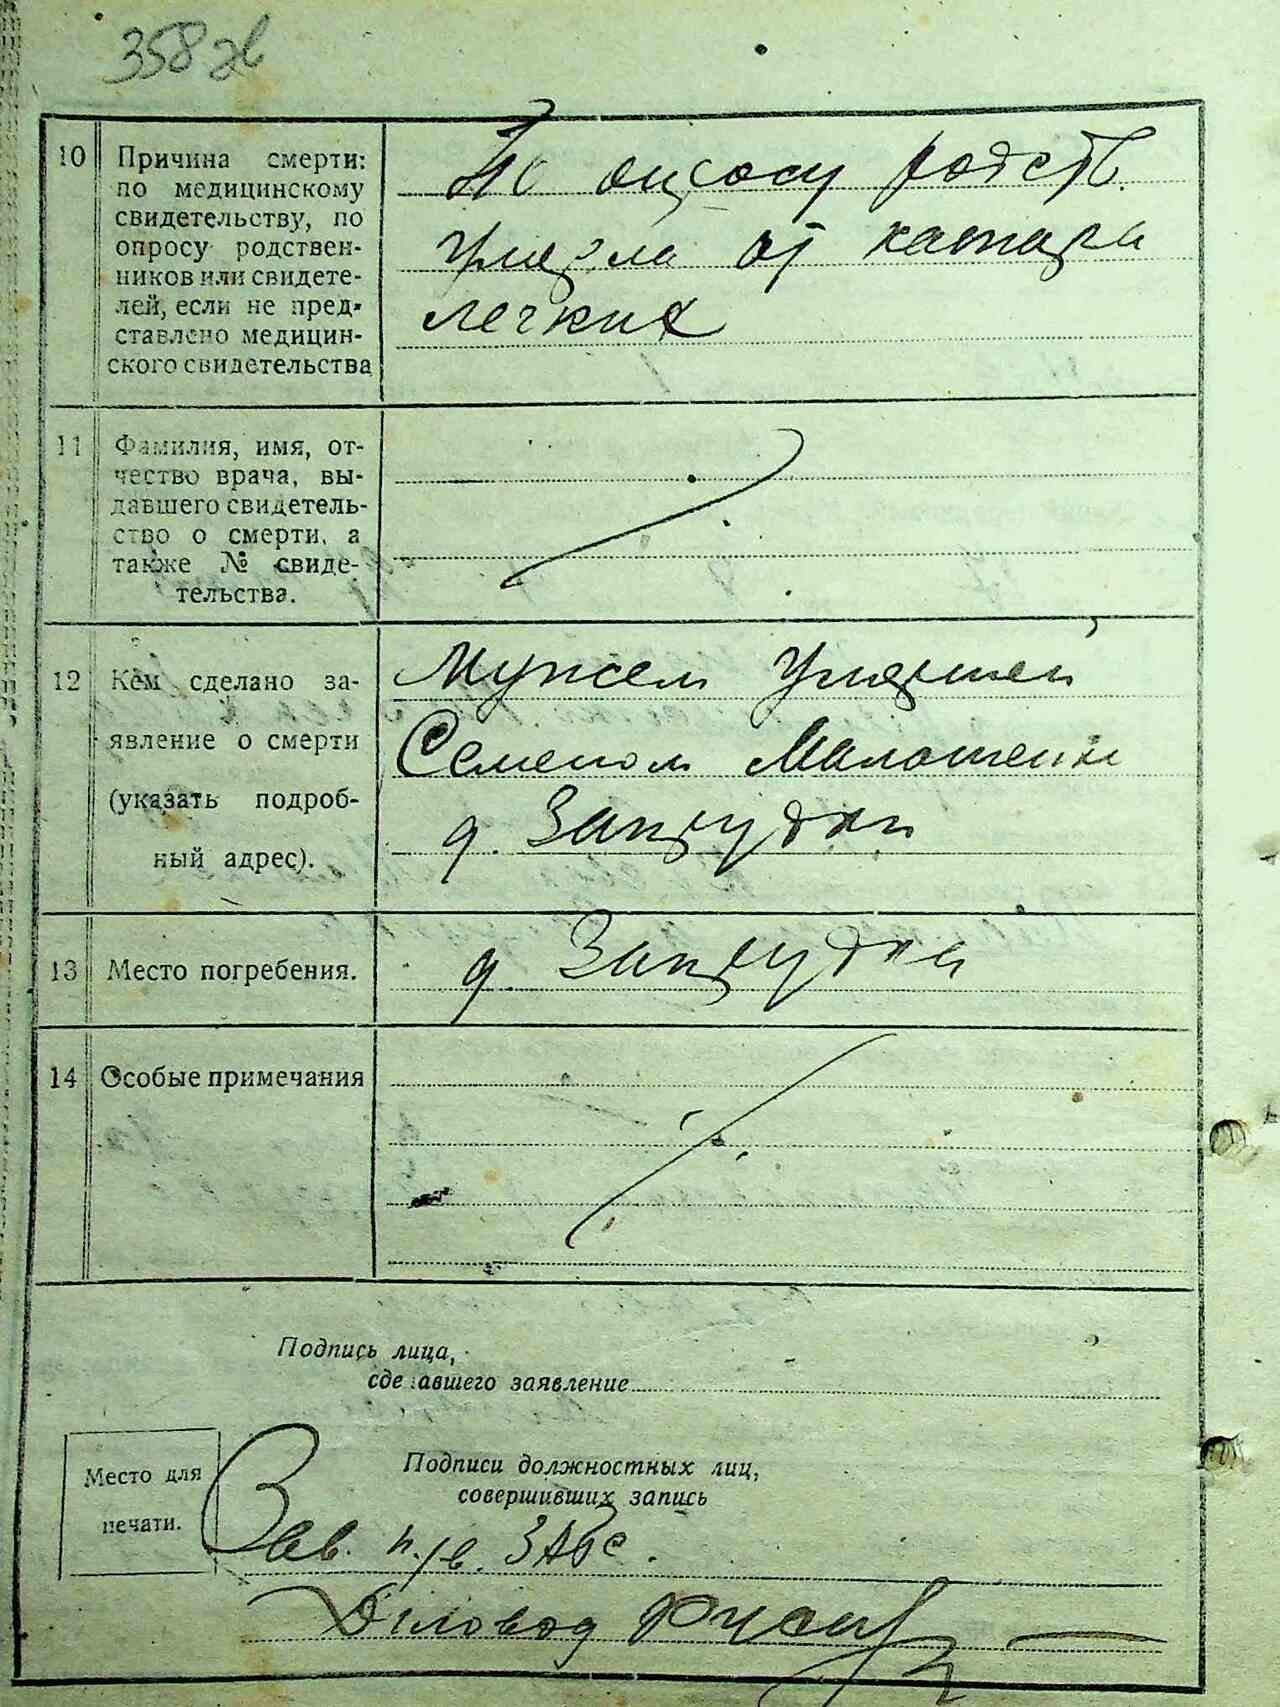 358 зв
10 Причина смерти:
по медицинскому
свидетельству, по
опросу родствен-
ников или свидете-
лей, если не пред-
ставлено медицин-
ского свидетельства
По опросу родств.
Умерла от катара
легких
11 Фамилия, имя, от-
чество врача, вы-
давшего свидетель-
ство о смерти, а
также № свиде-
тельства.
12 Кем сделано за-
явление о смерти
(указать подроб-
ный адрес).
Мужем Умершей
Семеном
д. Запрудки
13 Место погребения.
д. Запрудка
14 Особые примечания
Подпись лица,
сделавшего заявление
Место для
печати.
Подписи должностных лиц,
совершивших запись
Зав. п/в. ЗАГС.
Діловод